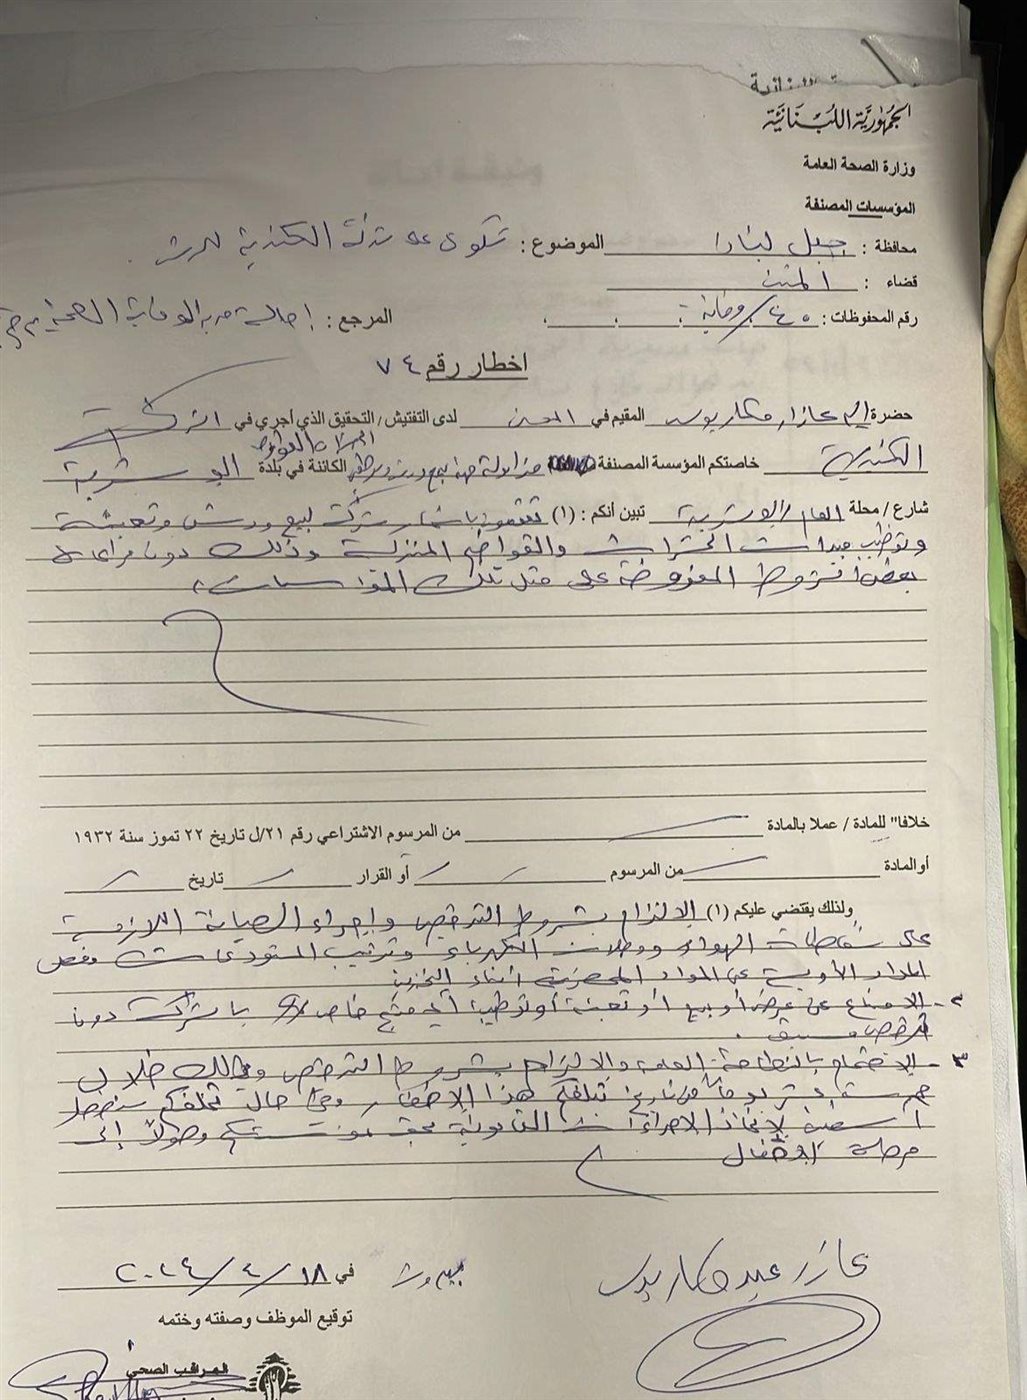 الجمهورية اللبنانية
وزارة الصحة العامة
المؤسسات المصنفة
محافظة : جبل لبنان الموضوع : شكوى على شركة الكندية للرش
قضاء : المتن
رقم المحفوظات : ٤٠ / وقاية المرجع : إحالة الوقاية الصحية
اخطار رقم ٧٤
حضرة السيد عازار مكاريوس المقيم في لدى التفتيش / التحقيق الذي أجري في شركة
الكندية خاصتكم المؤسسة المصنفة مزاولة مهنة بيع ورش الحشرات والقوارض الكائنة في بلدة البوشرية
شارع / محلة العام / البوشرية تبين أنكم : (١) تقومون باستثمار شركة لبيع ورش وتعبئة
وتوظيب مبيدات الحشرات والقوارض المنزلية وذلك دون مراعاة
بعض الشروط المفروضة على مثل تلك المؤسسات .
خلافا" للمادة / عملا بالمادة من المرسوم الاشتراعي رقم ٢١/ل تاريخ ٢٢ تموز سنة ١٩٣٢
أو المادة من المرسوم أو القرار تاريخ
ولذلك يقتضي عليكم (١) الالتزام بشروط الترخيص وإجراء الصيانة اللازمة
على شفاطات الهواء ووصلات الكهرباء وترتيب المستودعات وفصل
المواد الأولية عن المواد المحضرة أثناء التخزين
٢ - الامتناع عن عرض أو بيع أو تعبئة أو توظيب أي منتج خاص بالشركة دون
ترخيص مسبق .
٣ - الاهتمام بالنظافة العامة والالتزام بشروط الترخيص وذلك خلال
خمسة عشر يوما من تاريخ تبلغكم هذا الإخطار وفي حال تخلفكم سنضطر
آسفين لإتخاذ الإجراءات القانونية بحق مؤسستكم وصولاً إلى
مرحلة الإقفال
عازار عبد مكاريوس
بيروت في ١٨ / ٤ / ٢٠٢٤
توقيع الموظف وصفته وختمه
المراقب الصحي